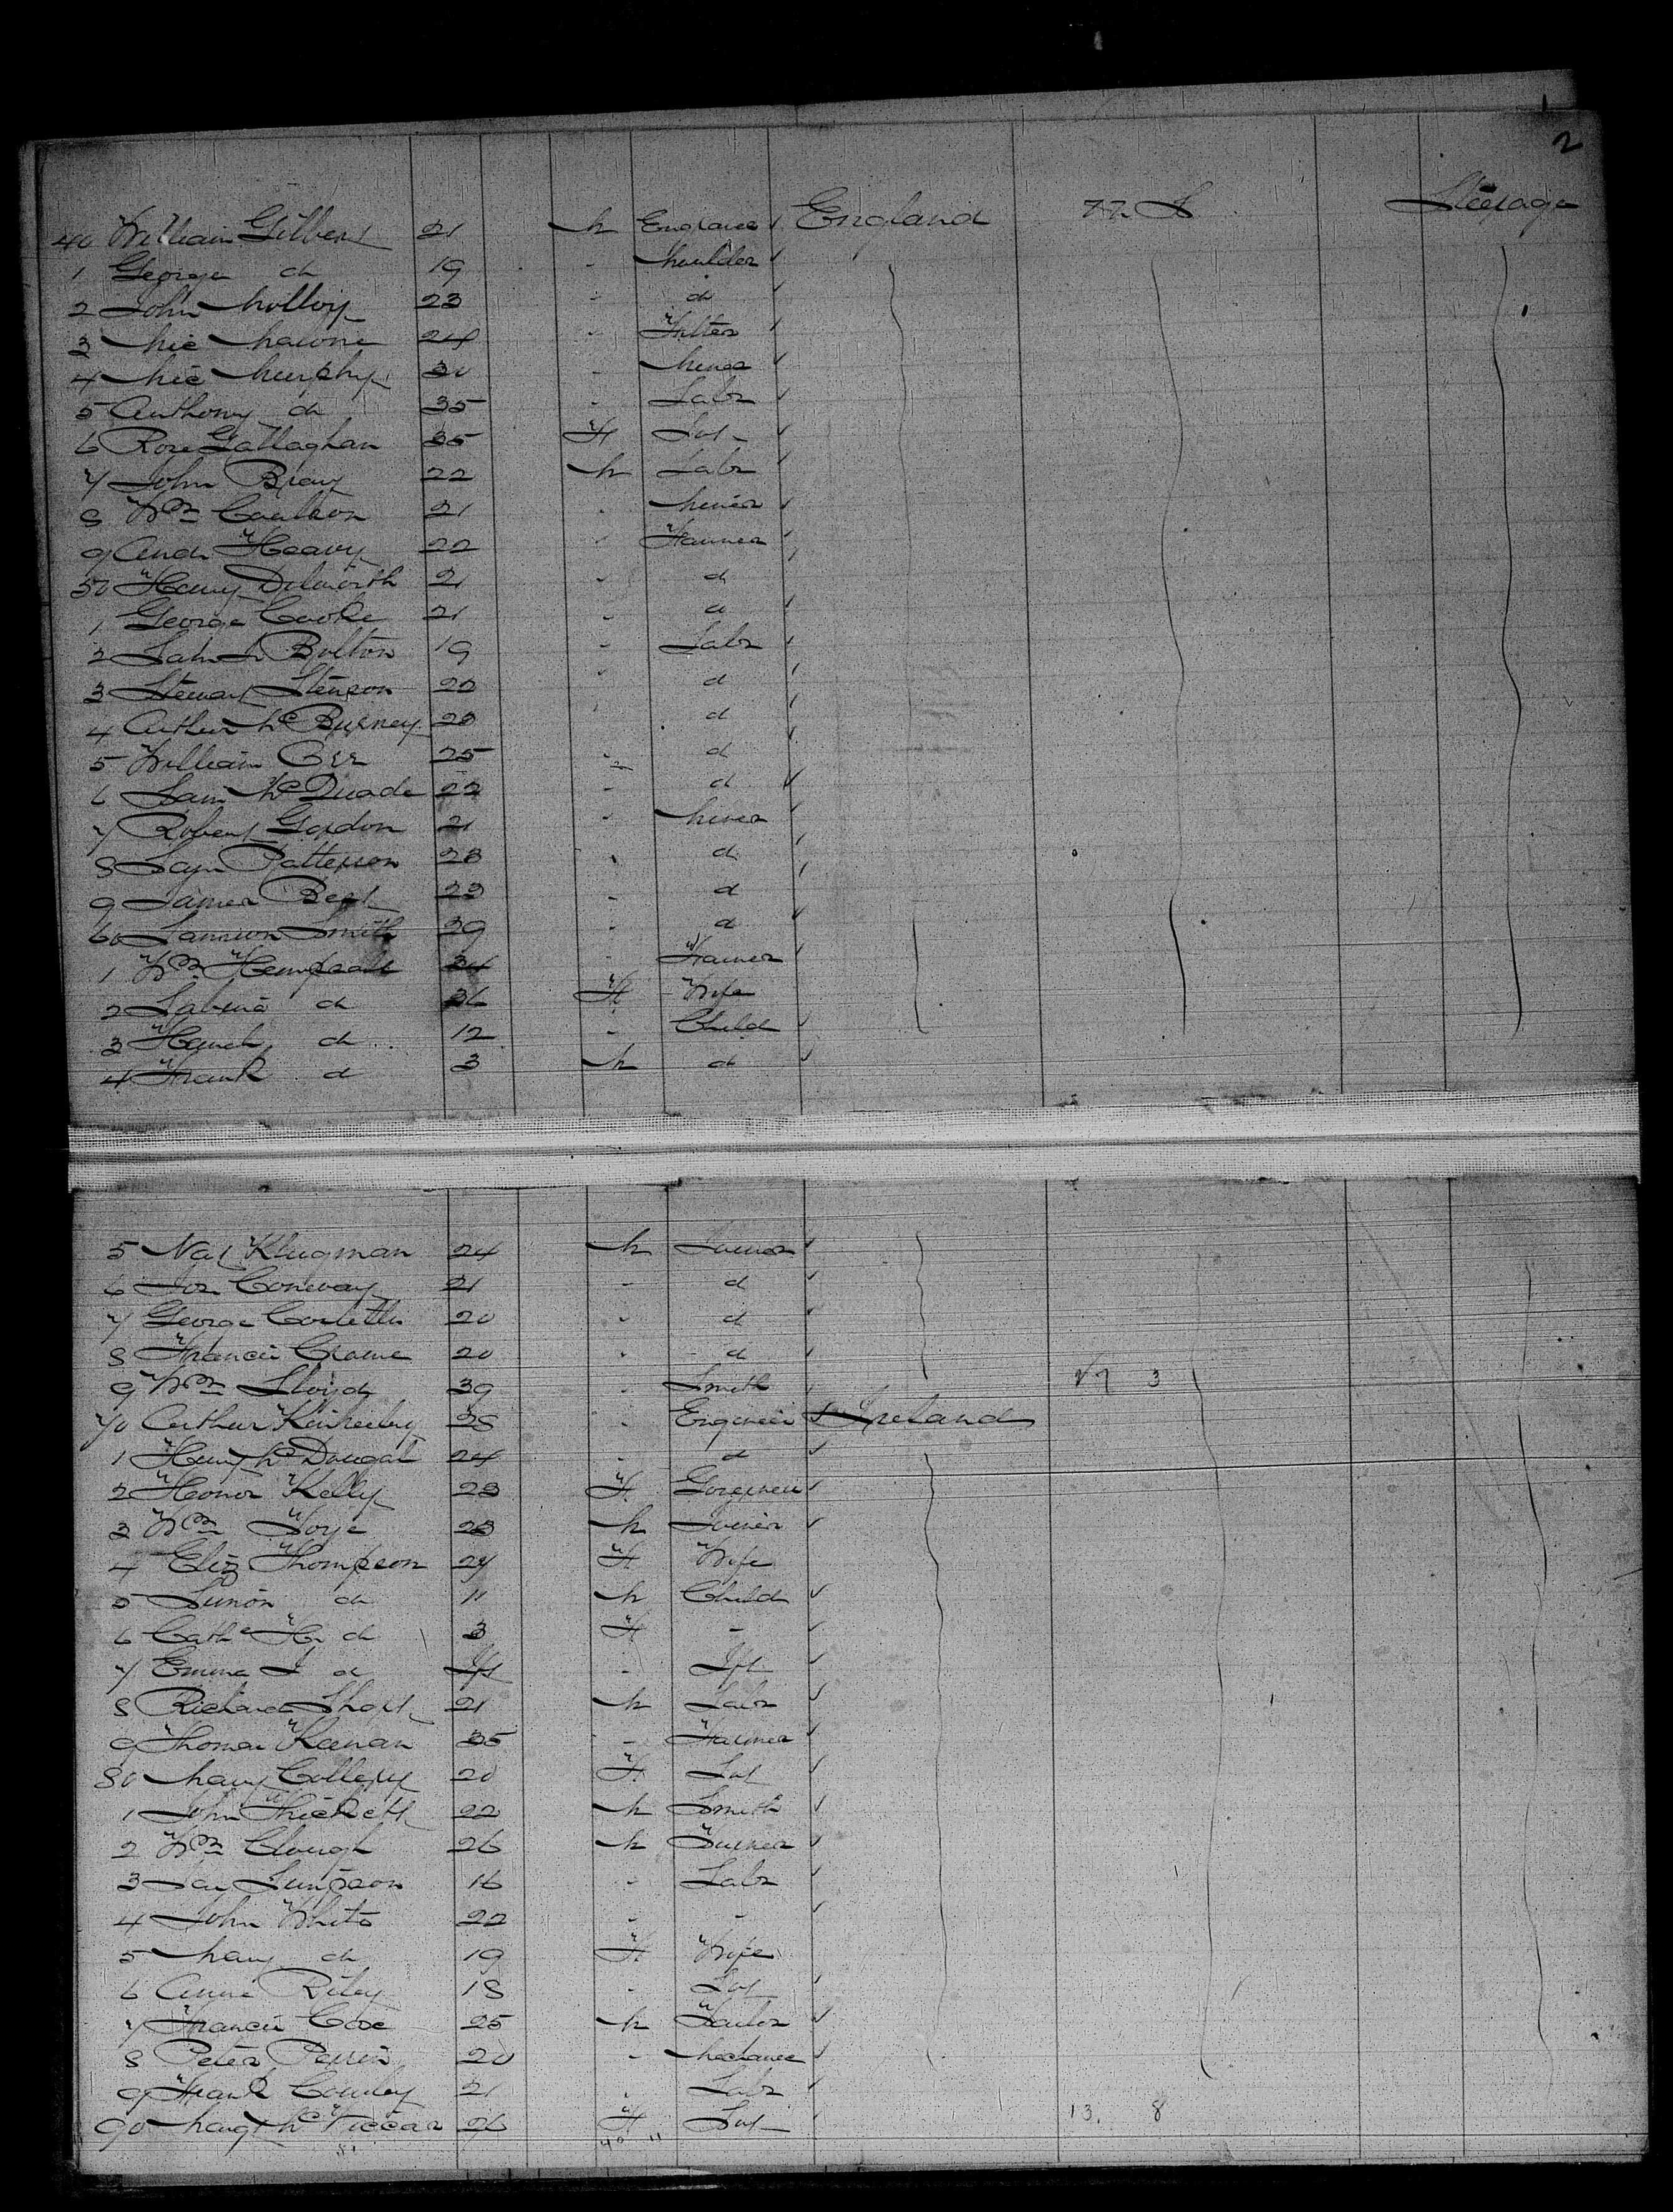 2
40 William Gilbert 21 M England England U S Steerage
1 George do 19 - Moulder
2 John Molloy 23 - do
3 Mic Malone 24 - Fitter
4 Mic Murphy 30 - Miner
5 Anthony do 35 - Labr
6 Rose Gallaghan 35 F
7 John Bray 22 M Labr
8 Wm Coulson 21 - Miner
9 Andw Heavy 22 - Farmer
50 Henry Dilworth 21 - d
1 George Cooke 21 - d
2 Bolton 19 - Labr
3 Stewart Stenson 22 - d
4 Arthur McBurney 20 - d
5 William Orr 25 - d
6 Sam McQuade 22 - d
7 Robert Gordon 21 - Miner
8 Saml Patterson 28 - d
9 James Best 23 - d
60 Smith 39 - d
1 Wm 34 - Farmer
2 Sabina do 36 F Wife
3 do 12 - Child
4 Frank d 3 M d
5 Nat Klugman 24 M Joiner
6 Jos Conway 21 - d
7 George 20 - d
8 Francis Crowe 20 - d
9 Wm Lloyd 39 - Smith 3
70 Arthur Kimberley 28 - Engineer Ireland
1 Henry McDougal 24 - d
2 Honor Kelly 23 F
3 Wm 23 M Joiner
4 Eliz Thompson 27 F Wife
5 do 11 M Child
6 Cathe H do 3 F -
7 Emma J d Ift - Ift
8 Richard Short 21 M Labr
9 Thomas Keenan 35 - Farmer
80 Mary Collery 20 F
1 John Thickett 22 M Smith
2 Wm Clough 26 M Turner
3 Simpson 16 - Labr
4 John White 22 - -
5 Mary do 19 F Wife
6 Anne Riley 18 -
7 Francis Coxe 25 M Tailor
8 Peter Perrin 20 - Mechanic
9 Frank 21 - Labr
90 Margt McViccar 26 F 13. 8